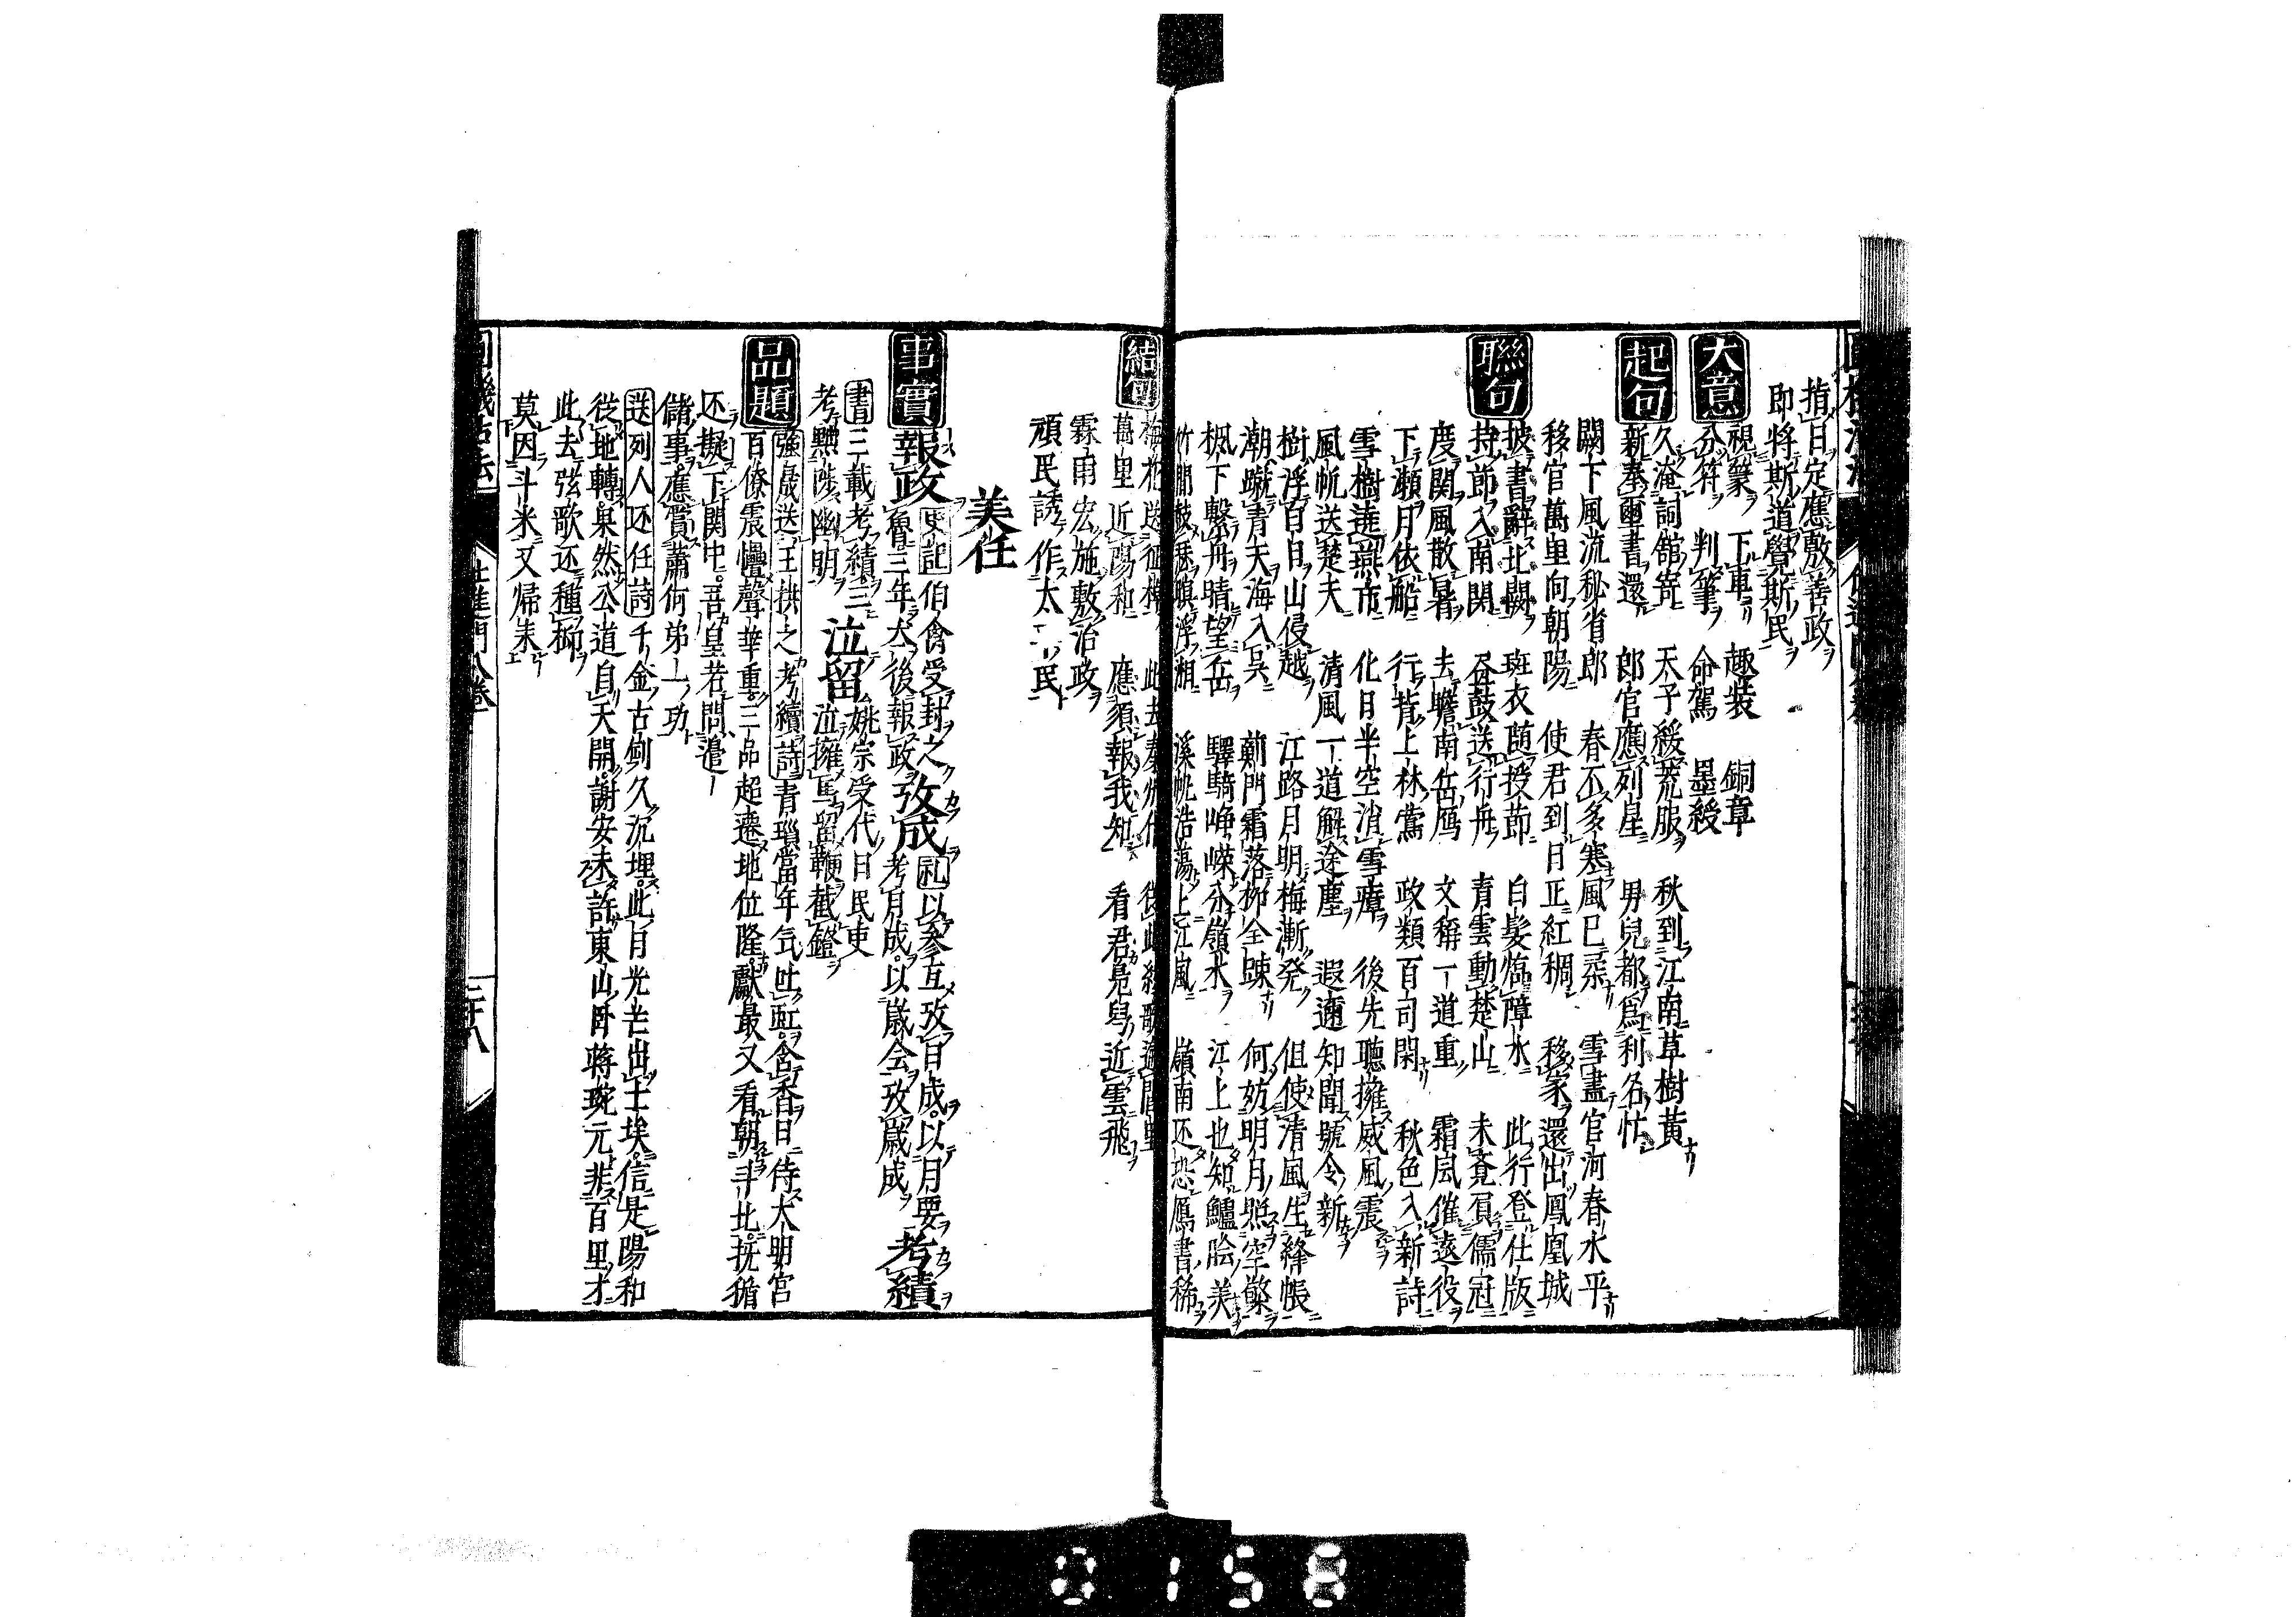 指日定應敷善政
即將斯道覺斯民
大意
視篆 下車 趣装 銅章
分符 判筆 命駕 墨綬
起句
久淹詞館寄 天子緩荒服 秋到江南草樹黃
新奉璽書還 郎官應列星 男兒都爲利名忙
闕下風流秘省郎 春不多寒風已柔 雪盡官河春水平
移官萬里向朝陽 使君到日正紅稠 移家還出鳳凰城
聯句
披書辭北闕 斑衣随授節 白髮臨障水 此行登仕版
持節入南関 谷鼓送行舟 青雲動楚山 未竟負儒冠
度関風散暑 去瞻南岳鴈 文稱一道重 霜風催遠役
下瀬月依船 行背上林鶯 政類百司閑 秋色入新詩
雪樹遠燕市 化日半空消雪瘴 後先聽擁威風震
風帆送楚天 清風一道解途塵 遐邇知聞號令新
樹浮百日山侵越 江路月明梅漸発 但使清風生絳帳
潮蹴青天海入吳 薊門霜落柳全踈 何妨明月照空檠
楓下繋舟晴望岳 驛騎崢嶸分嶺水 江上也知鱸膾美
竹間鼓瑟暝浮湘 溪帆浩蕩上江風 嶺南还恐鴈書稀
結句
萬里近陽和 應須報我知 看君鳧舄近雲飛
霖雨宏施敷治政
頑民誘作太 民
美任
事實
報政 史記 伯禽受封之 攷成 礼 以参互攷日成以月要 考績
魯三年大後報政 考月成以歲会攷歲成
書 三載考績三 泣留 姚宗受代日民吏
考黜陟幽明 泣擁馬留鞭截鐙
品題
強晟送王拱之考績詩 青瑣當年気吐虹含香日侍大明宮
百僚震懾聲華重三品超遷地位隆獻最又看朝斗北抚循
还擬下関中吾皇若問邉
儲事應賞蕭何第一功
送列人还任詩 千金古劍久沉埋此日光芒出土埃信是陽和
從地轉果然公道自天開謝安未許東山卧蔣琬元非百里才
此去弦歌还種柳
莫因斗米又帰来
三十八
0158